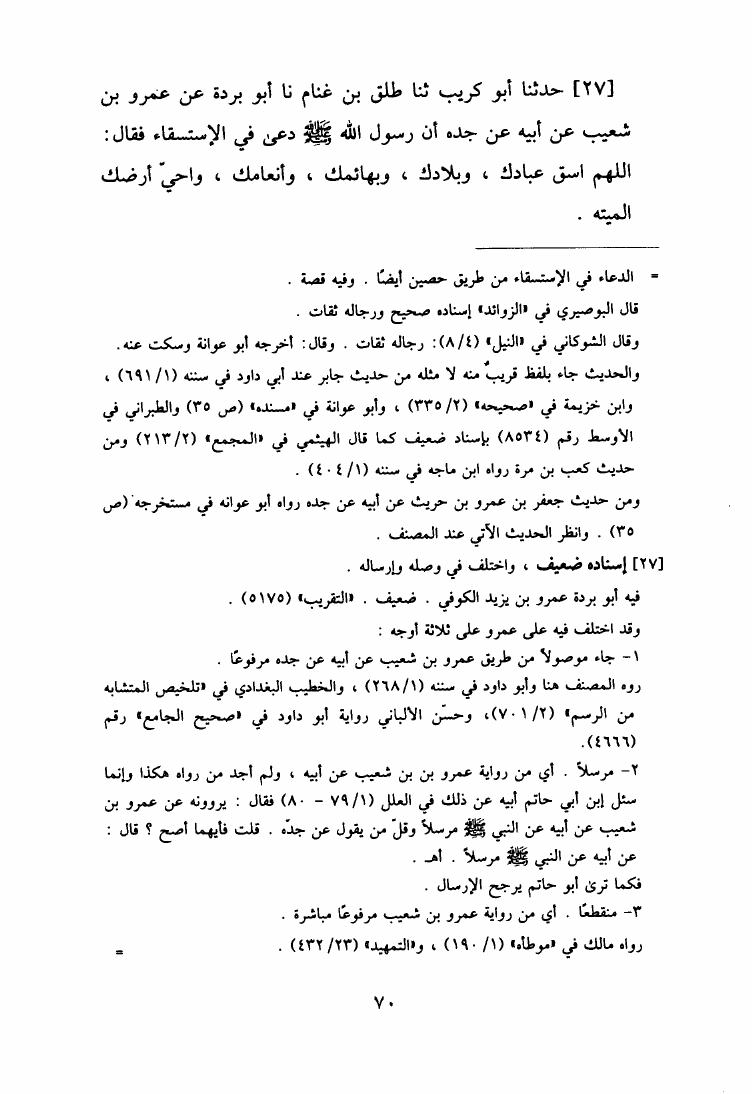 [٢٧] حدثنا أبو كريب ثنا طلق بن غنام نا أبو بردة عن عمرو بن
شعيب عن أبيه عن جده أن رسول الله ﷺ دعىٰ في الإستسقاء فقال:
اللهم اسق عبادك ، وبلادك ، وبهائمك ، وأنعامك ، واحيّ أرضك
الميته .
= الدعاء في الإستسقاء من طريق حصين أيضًا . وفيه قصة .
قال البوصيري في «الزوائد» إسناده صحيح ورجاله ثقات .
وقال الشوكاني في «النيل» (٨/٤): رجاله ثقات . وقال: أخرجه أبو عوانة وسكت عنه.
والحديث جاء بلفظ قريبٌ منه لا مثله من حديث جابر عند أبي داود في سننه (٦٩١/١) ،
وابن خزيمة في «صحيحه» (٣٣٥/٢) ، وأبو عوانة في «مسنده» (ص ٣٥) والطبراني في
الأوسط رقم (٨٥٣٤) بإسناد ضعيف كما قال الهيثمي في «المجمع» (٢١٣/٢) ومن
حديث كعب بن مرة رواه ابن ماجه في سننه (٤٠٤/١) .
ومن حديث جعفر بن عمرو بن حريث عن أبيه عن جده رواه أبو عوانه في مستخرجه (ص
٣٥) . وانظر الحديث الآتي عند المصنف .
[٢٧] إسناده ضعيف ، واختلف في وصله وإرساله .
فيه أبو بردة عمرو بن يزيد الكوفي . ضعيف . «التقريب» (٥١٧٥) .
وقد اختلف فيه على عمرو على ثلاثة أوجه :
١- جاء موصولاً من طريق عمرو بن شعيب عن أبيه عن جده مرفوعًا .
روه المصنف هنا وأبو داود في سننه (٢٦٨/١) ، والخطيب البغدادي في «تلخيص المتشابه
من الرسم» (٧٠١/٢)، وحسّن الألباني رواية أبو داود في «صحيح الجامع» رقم
(٤٦٦٦).
٢- مرسلاً . أي من رواية عمرو بن بن شعيب عن أبيه ، ولم أجد من رواه هكذا وإنما
سئل إبن أبي حاتم أبيه عن ذلك في العلل (٧٩/١ – ٨٠) فقال : يروونه عن عمرو بن
شعيب عن أبيه عن النبي ﷺ مرسلاً وقلّ من يقول عن جدّه . قلت فأيهما أصح ؟ قال :
عن أبيه عن النبي ﷺ مرسلاً . أهـ .
فكما ترىٰ أبو حاتم يرجح الإرسال .
٣- منقطعًا . أي من رواية عمرو بن شعيب مرفوعًا مباشرة .
رواه مالك في «موطأه» (١٩٠/١) ، و«التمهيد» (٤٣٢/٢٣) . =
٧٠